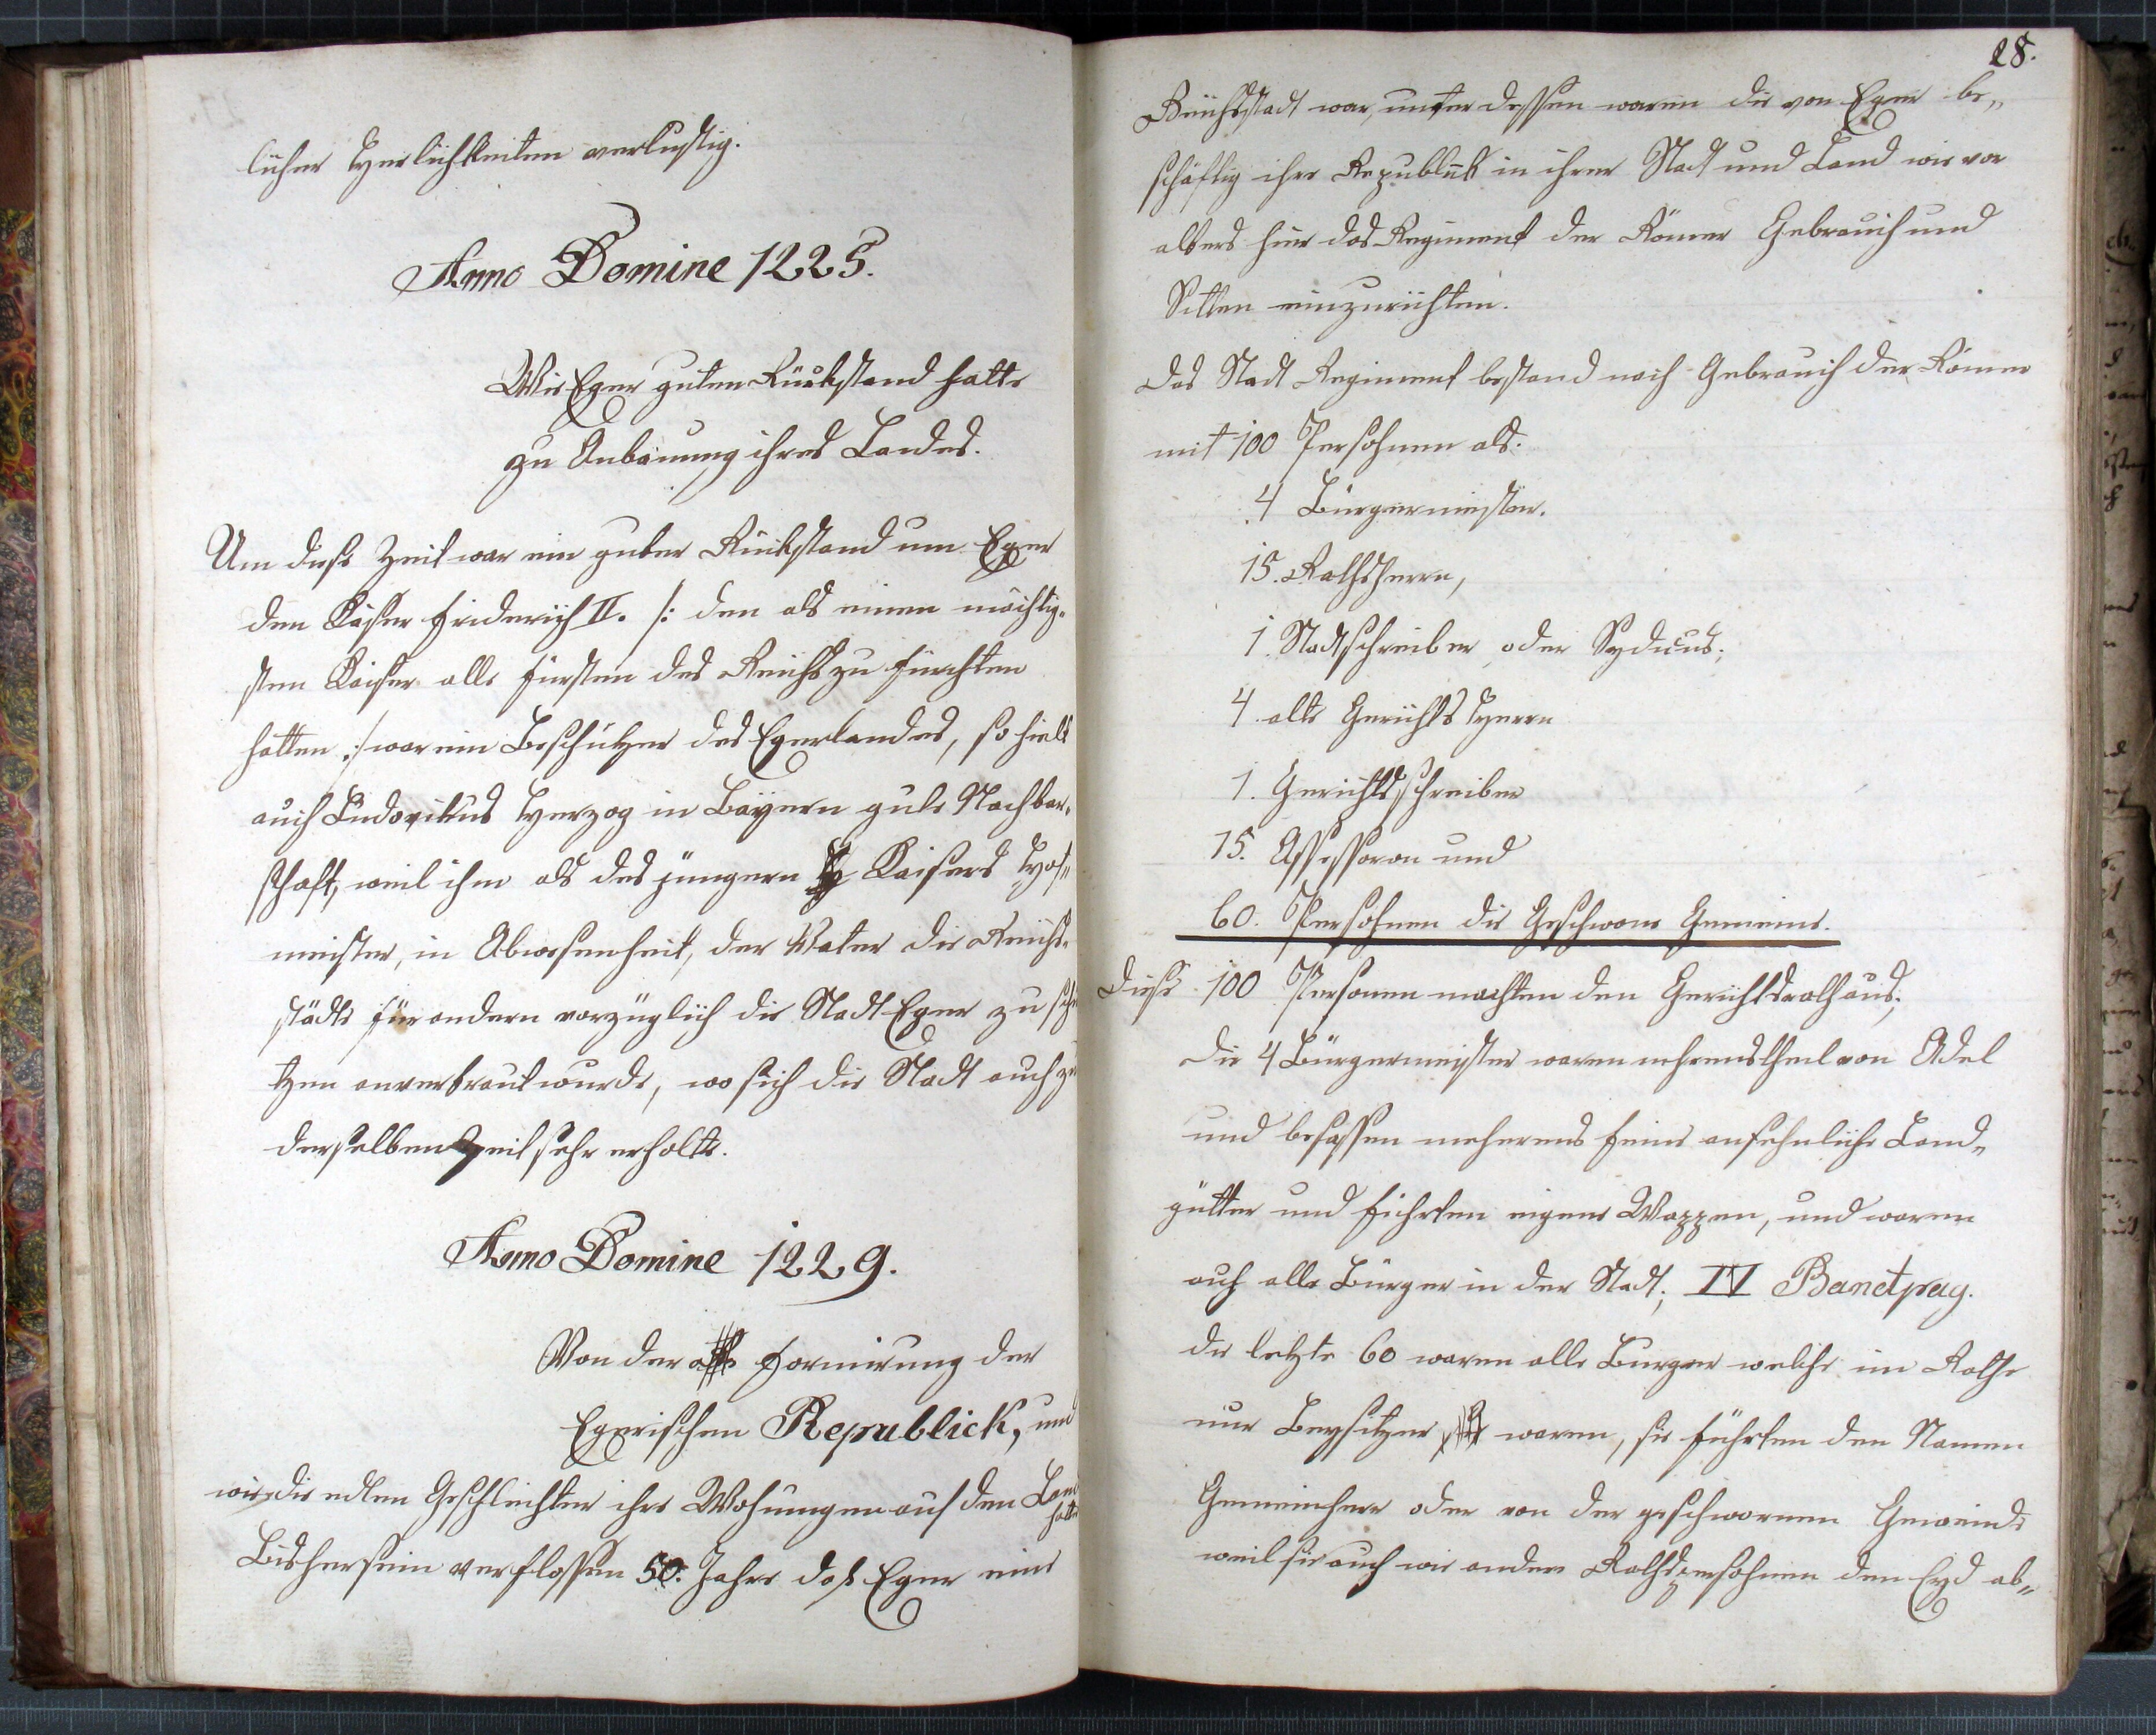 licher Herlichkeiten verlustig.
Anno Domine 1225.
Wie Eger guten Rückstand hatte
zu Anbauung ihres Landes.
Um diese Zeit war ein guter Rückstand um Eger
den Kaiser Friderich II. /: den als einen mächtig-
sten Kaiser alle Fürsten des Reichs zu fürchten
hatten :/ war ein Beschützer des Egerlandes, so hielt
auch Ludovikus Herzog in Bayern gute Nachbar-
schaft, weil ihm als des jüngern Kaisers Hof„
meister, in Abwesenheit, der Vater die Reichs-
städte für andern vorzüglich die Stadt Eger zu schü
tzen anvertraut wurde, wo sich die Stadt auch zu
derselben Zeit sehr erholte.
Anno Domine 1229.
Von der Formirung der
Egerischen Republick, und
wie die edlen Geschlechter ihre Wohnungen auf den Land
hatte
Bishersein verflossen 50. Jahre daß Eger eine
28.
Reichsstadt war, unter dessen waren die von Eger be„
schäftig ihre Republick in ihrer Stadt und Land wie vor
alters hier das Regiment der Römer Gebrauch und
Sitten einzurichten.
Das Stadt Regiment bestand nach Gebrauch der Römer
mit 100 Persohnen als:
4 Bürgermeister.
15. Rathsherrn,
1. Stadtschreiber oder Sydicus;
4. alte Gerichts Herrn
1. Gerichtsschreiber
15. Assessoron und
60. Persohnen die Geschworne Gemeine.
Diese 100 Personen machten den Gerichtsrath aus;
die 4 Bürgermeister waren mehrenstheil von Adel
und besassen meherens feine ansehnliche Land„
gütter und führten eigene Wappen, und waren
auch alle Bürger in der Stadt; IV Banctpag.
die letzte 60 waren alle Burger welche im Rathe
nur Beysitzer waren, sie führten den Namen
Gemeinherr oder von der geschwornen Gemeinde
weil sie auch wie andere Rathspersohnen den Eyd ab„